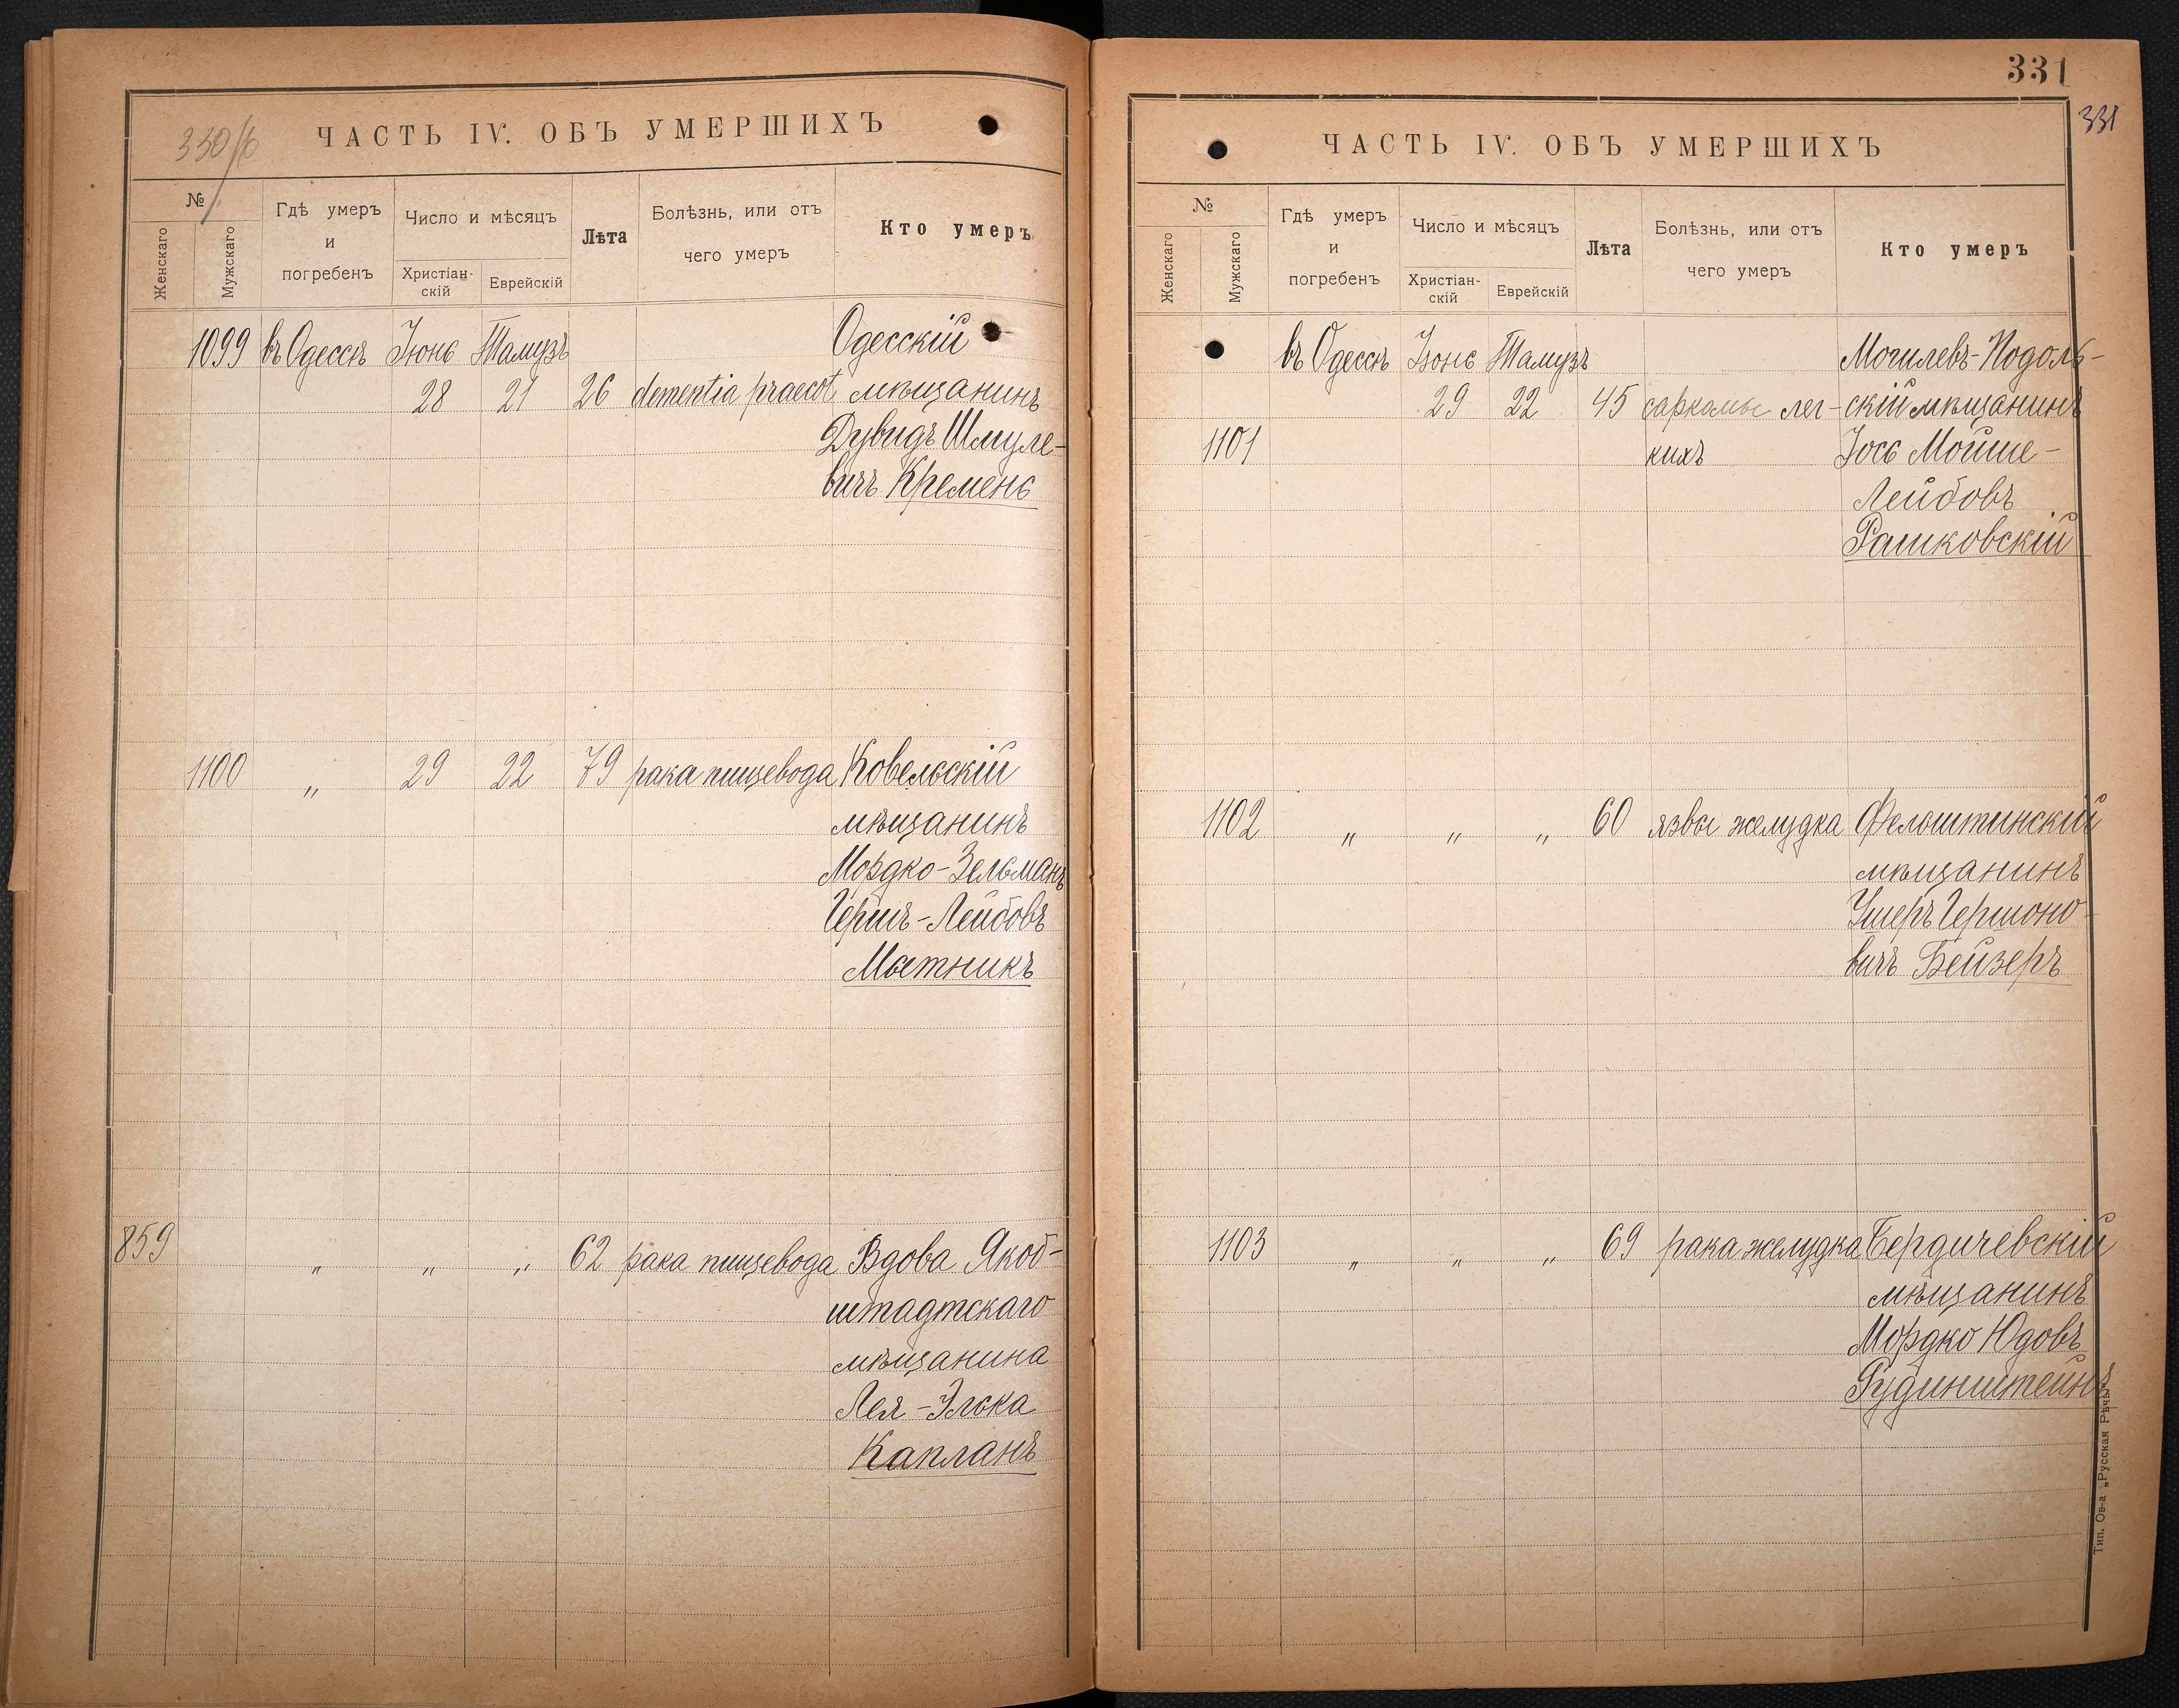 330/б
ЧАСТЬ IV. ОБЪ УМЕРШИХЪ
№
Женскаго
Мужскаго
Гдѣ умеръ
и
погребенъ
Число и мѣсяцъ
Христіан-
скій
Еврейскій
Лѣта
Болѣзнь, или отъ
чего умеръ
Кто умеръ
1099 въ Одессѣ Іюнь Тамузъ Одесскій
28 21 26 dementia praecot мѣщанинъ
Дувидъ Шмуле-
вичъ Кремень
1100 „ 29 22 79 рака пищевода Ковельскій
мѣщанинъ
Мордко-Зельманъ
Гершъ-Лейбовъ
Мытникъ
859 „ „ „ 62 рака пищевода Вдова Якоб-
штадтскаго
мѣщанина
Лея-Элька
Капланъ
331
331
ЧАСТЬ IV. ОБЪ УМЕРШИХЪ
№
Женскаго
Мужскаго
Гдѣ умеръ
и
погребенъ
Число и мѣсяцъ
Христіан-
скій
Еврейскій
Лѣта
Болѣзнь, или отъ
чего умеръ
Кто умеръ
въ Одессѣ Іюнь Тамузъ Могилевъ-Подоль-
29 22 45 саркомы лег- скій мѣщанинъ
1101 кихъ Іось Мойше-
Лейбовъ
Рашковскій
1102 „ „ „ 60 язвы желудка Фельштинскій
мѣщанинъ
Ушеръ Гершоно-
вичъ Бейзеръ
1103 „ „ „ 69 рака желудка Бердичевскій
мѣщанинъ
Мордко Юдовъ
Рудинштейнъ
Тип. Ов-а „Русская Рѣчь"